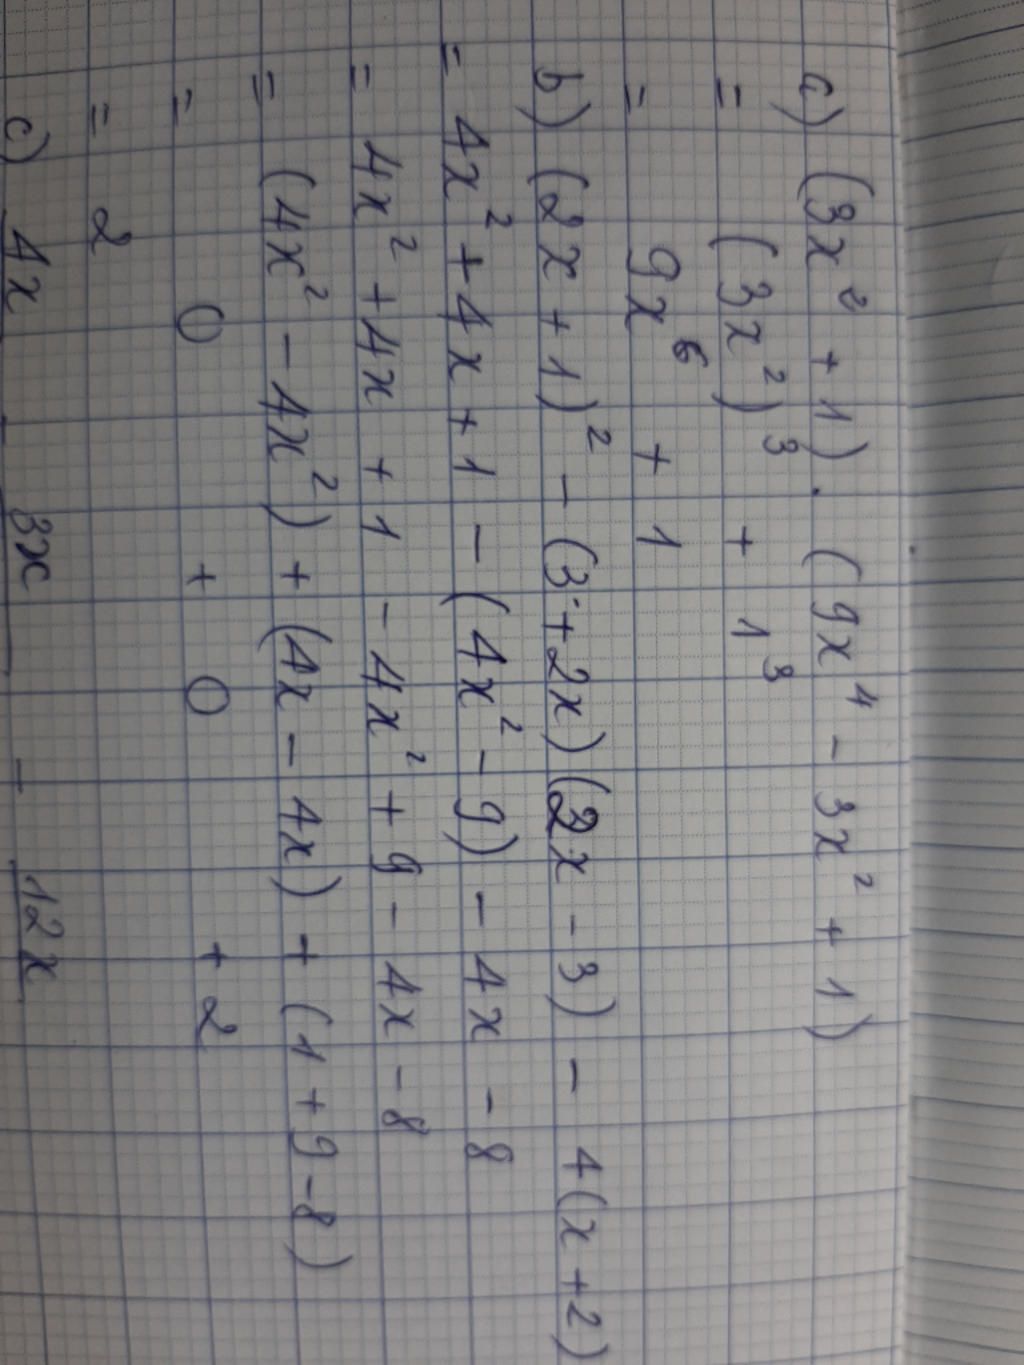 a) (3x² + 1). (9x⁴ - 3x² + 1)
= (3x²)³ + 1³
= 9x⁶ + 1
b) (2x + 1)² - (3 + 2x)(2x - 3) - 4(x + 2)
= 4x² + 4x + 1 - (4x² - 9) - 4x - 8
= 4x² + 4x + 1 - 4x² + 9 - 4x - 8
= (4x² - 4x²) + (4x - 4x) + (1 + 9 - 8)
= 0 + 0 + 2
= 2
c) 4x + 3x - 12x